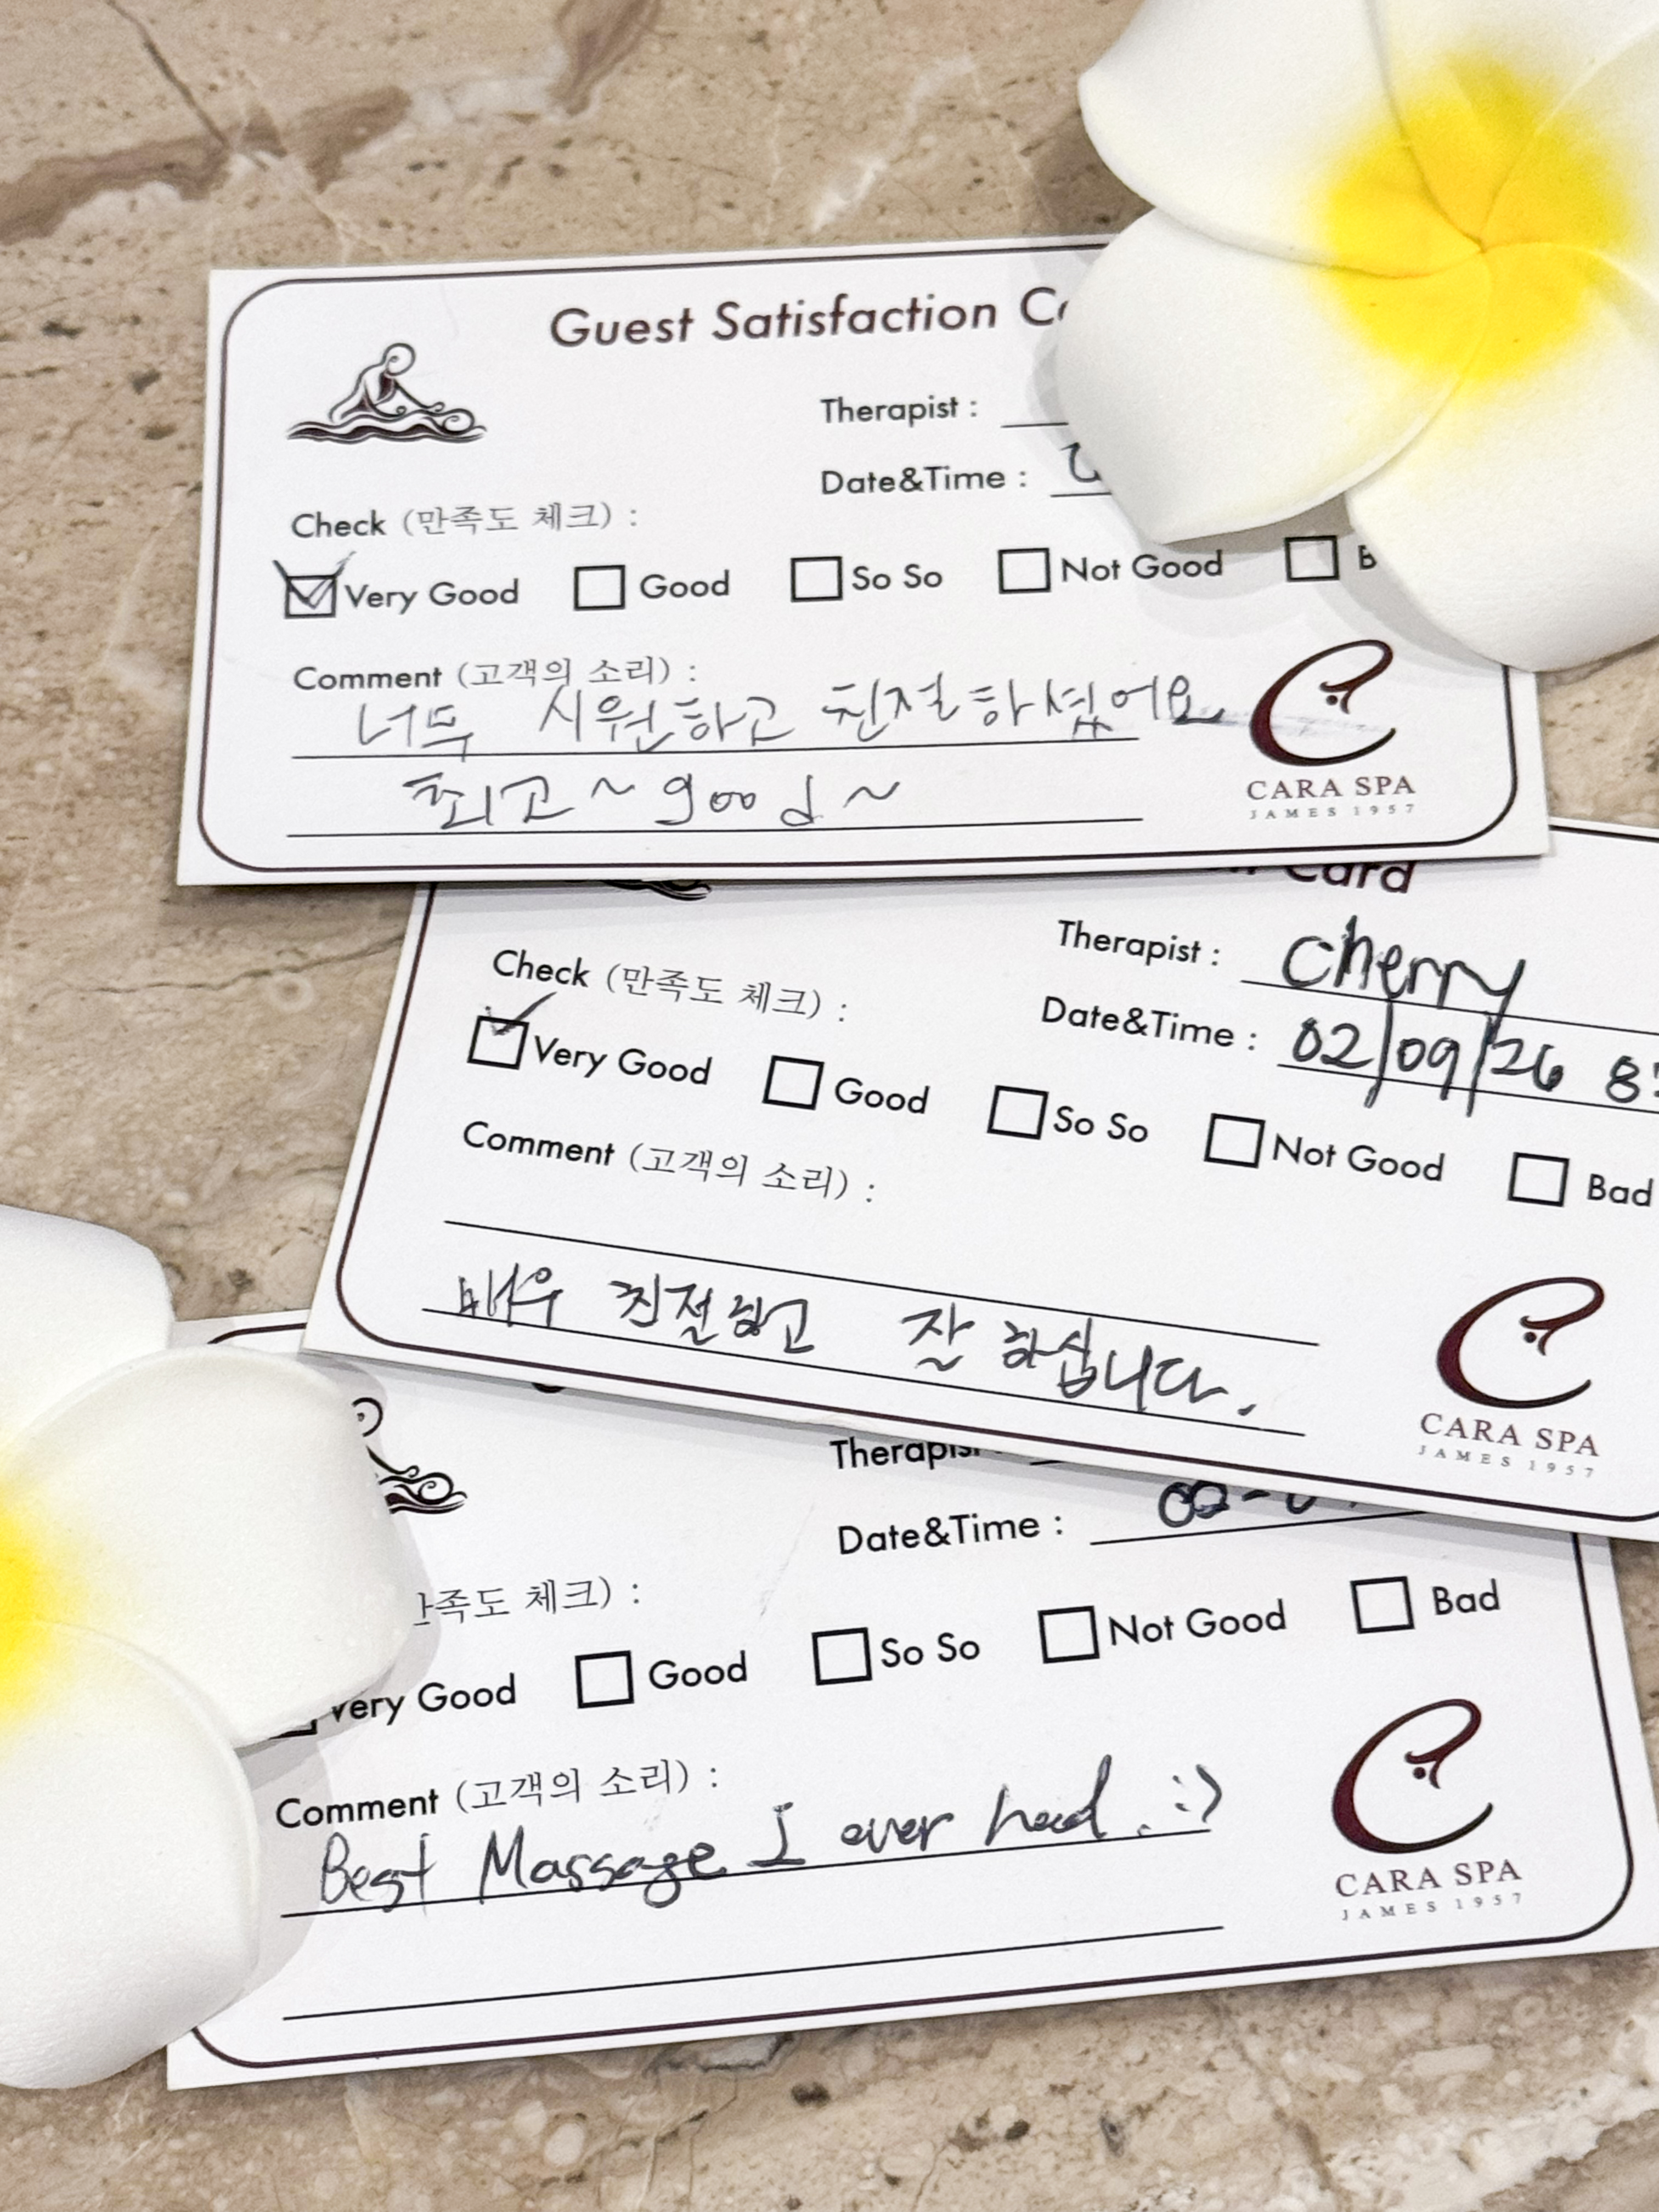 Guest Satisfaction
Therapist :
Date&Time :
Check (만족도 체크) :
Very Good Good So So Not Good
Comment (고객의 소리) :
너무 시원하고 친절하셨어요
최고~ good~
CARA SPA
JAMES 1957
Card
Therapist : Cherry
Date&Time : 02/09/26
Check (만족도 체크) :
Very Good Good So So Not Good Bad
Comment (고객의 소리) :
매우 친절하고 잘 하십니다.
CARA SPA
JAMES 1957
Therapist
Date&Time :
체크) :
Very Good Good So So Not Good Bad
Comment (고객의 소리) :
Best Massage I ever had. :)
CARA SPA
JAMES 1957